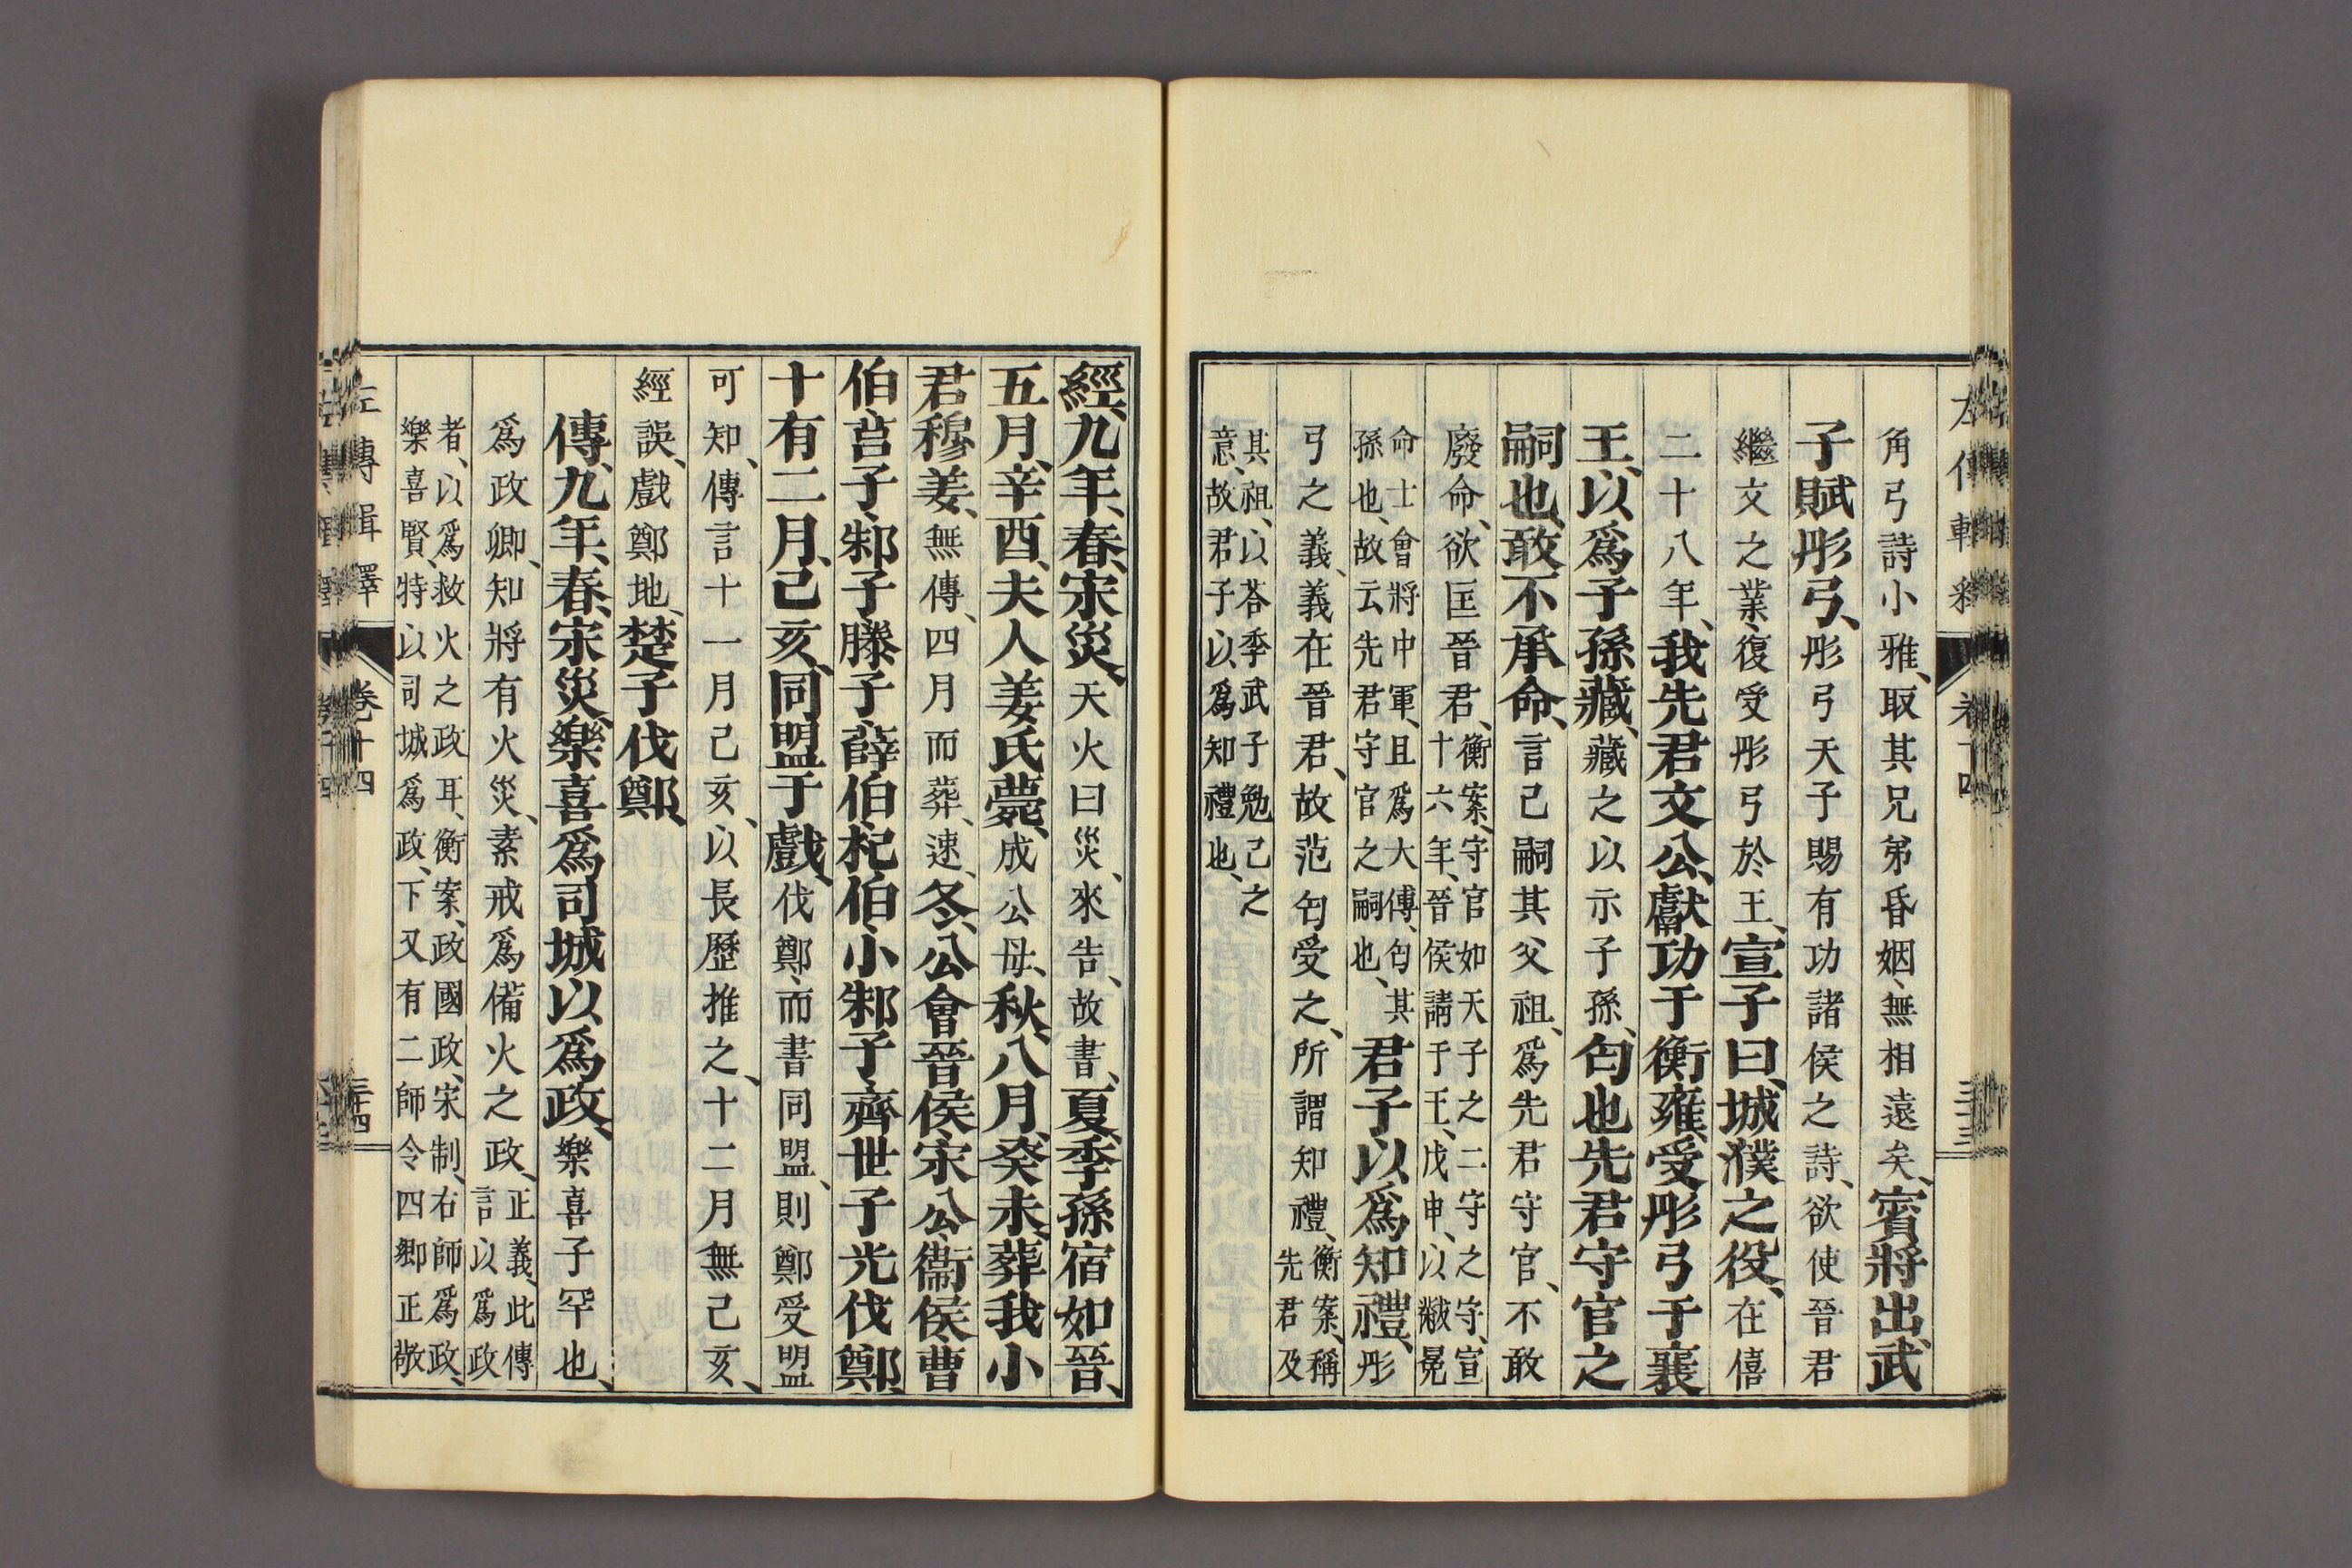 角弓詩小雅、取其兄弟昏姻、無相遠矣、賓將出、武
子賦彤弓、彤弓天子賜有功諸侯之詩、欲使晉君
繼文之業、復受彤弓於王、宣子曰、城濮之役、在僖
二十八年、我先君文公、獻功于衡雍、受彤弓于襄
王、以爲子孫藏、藏之以示子孫、匄也先君守官之
嗣也、敢不承命、言己嗣其父祖、爲先君守官、不敢
廢命、欲匡晉君、衡案、守官如天子之二守之守、宣
十六年、晉侯請于王、戊申、以黻冕
命士會將中軍、且爲大傅、匄其
孫也、故云先君守官之嗣也、君子以爲知禮、彤
弓之義、義在晉君、故范匄受之、所謂知禮、衡案、稱
先君及
其祖、以荅季武子勉己之
意、故君子以爲知禮也、
經、九年、春、宋災、天火曰災、來告、故書、夏、季孫宿如晉、
五月、辛酉、夫人姜氏薨、成公母、秋、八月、癸未、葬我小
君穆姜、無傳、四月而葬、速、冬、公會晉侯宋公衞侯曹
伯莒子邾子滕子薛伯杞伯小邾子齊世子光伐鄭、
十有二月、己亥、同盟于戲、伐鄭、而書同盟、則鄭受盟
可知、傳言十一月己亥、以長歷推之、十二月無己亥、
經誤、戲鄭地、楚子伐鄭、
傳、九年、春、宋災、樂喜爲司城以爲政、樂喜子罕也、
爲政卿、知將有火災、素戒爲備火之政、正義、此傳
言以爲政
者、以爲救火之政耳、衡案、政國政、宋制、右師爲政、
樂喜賢、特以司城爲政、下又有二師令四鄉正敬
左傳輯釋 卷十四 三十四